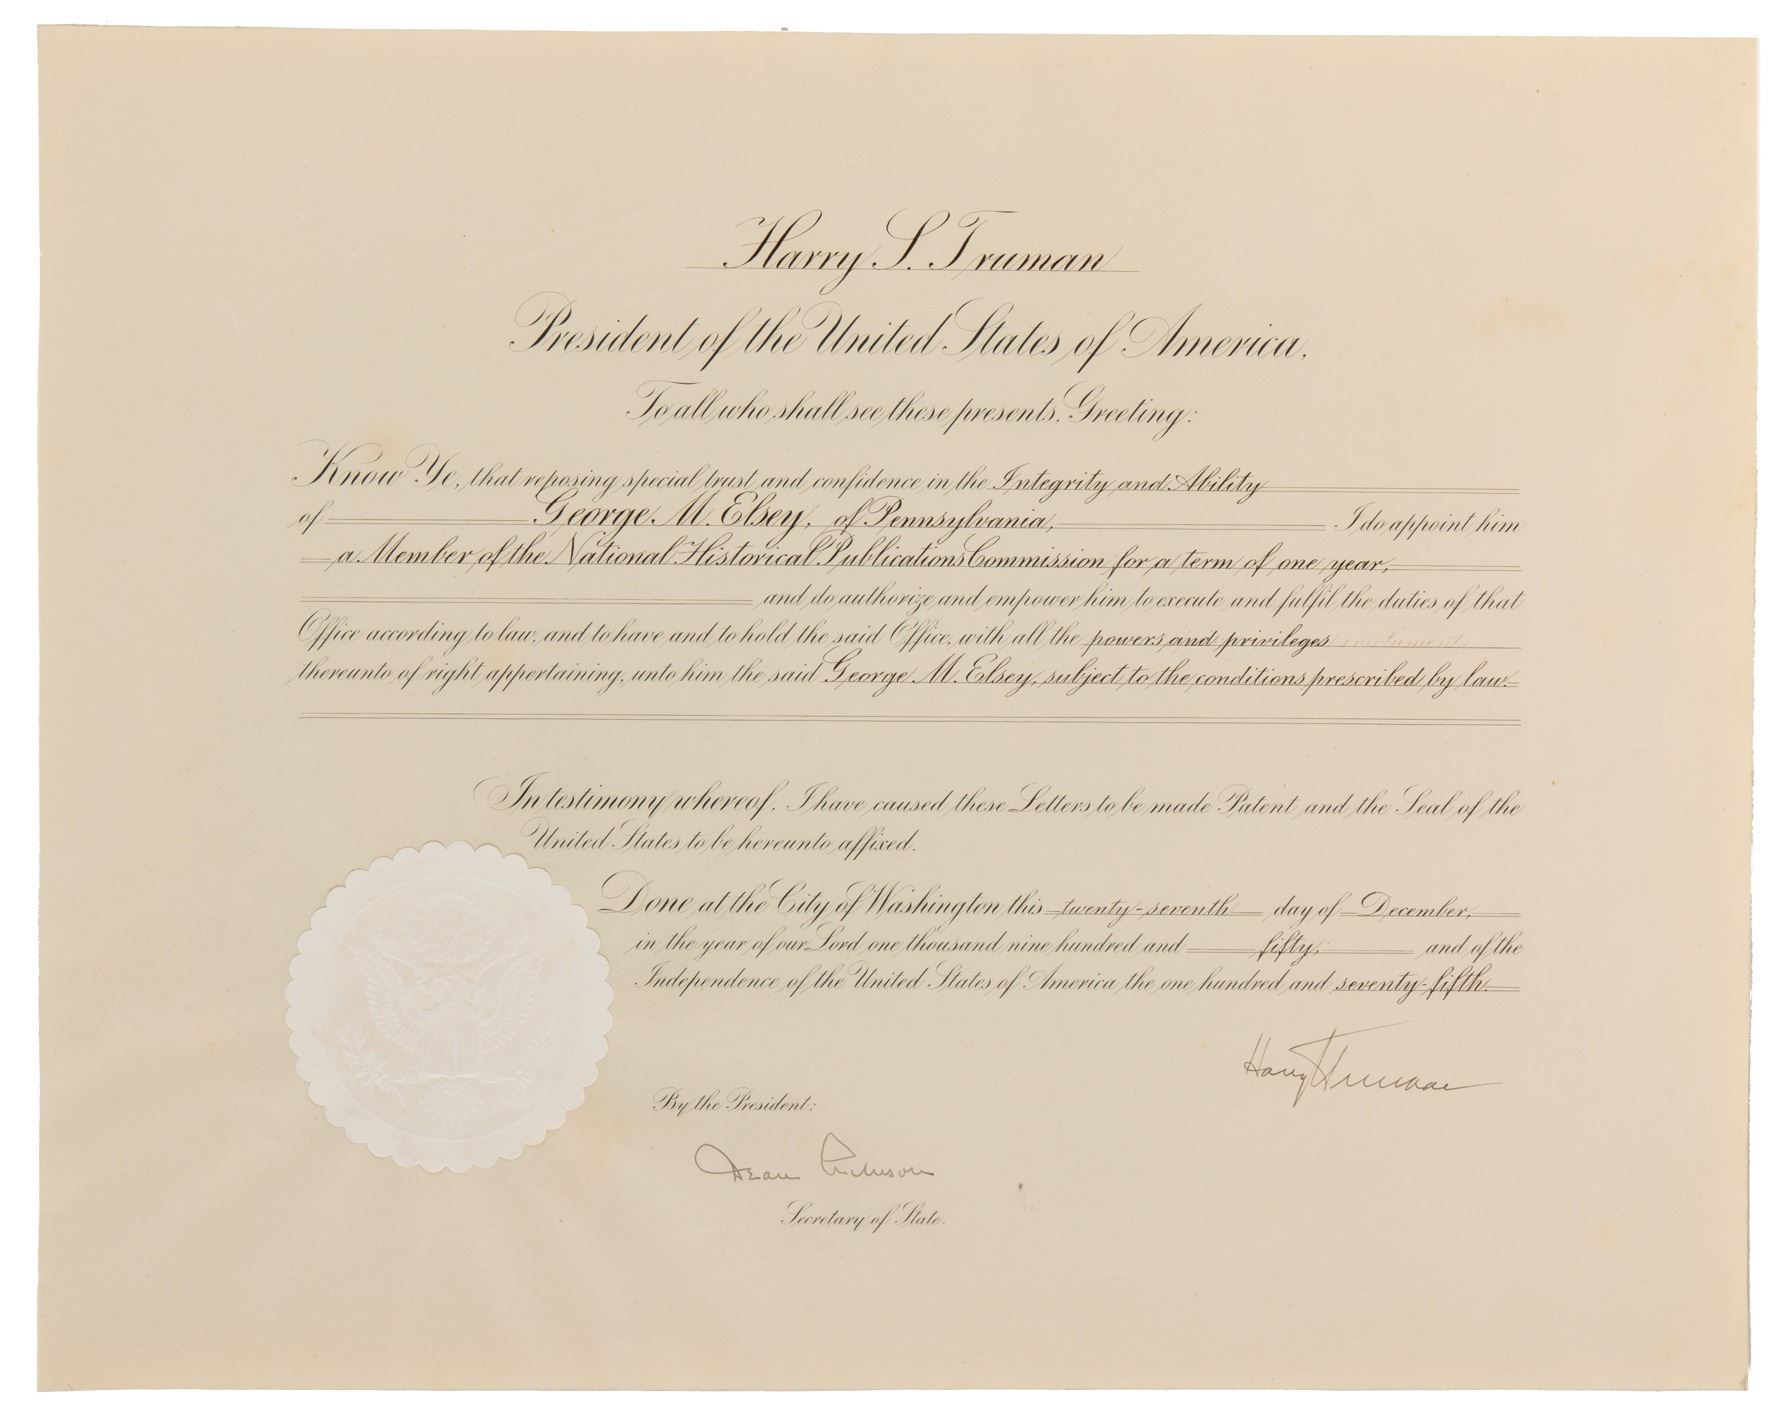 Harry S. Truman
President of the United States of America.
To all who shall see these presents. Greeting:
Know Ye, that reposing special trust and confidence in the Integrity and Ability
of George M. Elsey, of Pennsylvania, I do appoint him
a Member of the National Historical Publications Commission for a term of one year,
and do authorize and empower him to execute and fulfil the duties of that
Office according to law, and to have and to hold the said Office, with all the powers and privileges
thereunto of right appertaining, unto him the said George M. Elsey, subject to the conditions prescribed by law.
In testimony whereof, I have caused these Letters to be made Patent and the Seal of the
United States to be hereunto affixed.
Done at the City of Washington this twenty-seventh day of December,
in the year of our Lord one thousand nine hundred and fifty, and of the
Independence of the United States of America the one hundred and seventy-fifth.
Harry S Truman
By the President:
Dean Acheson
Secretary of State.